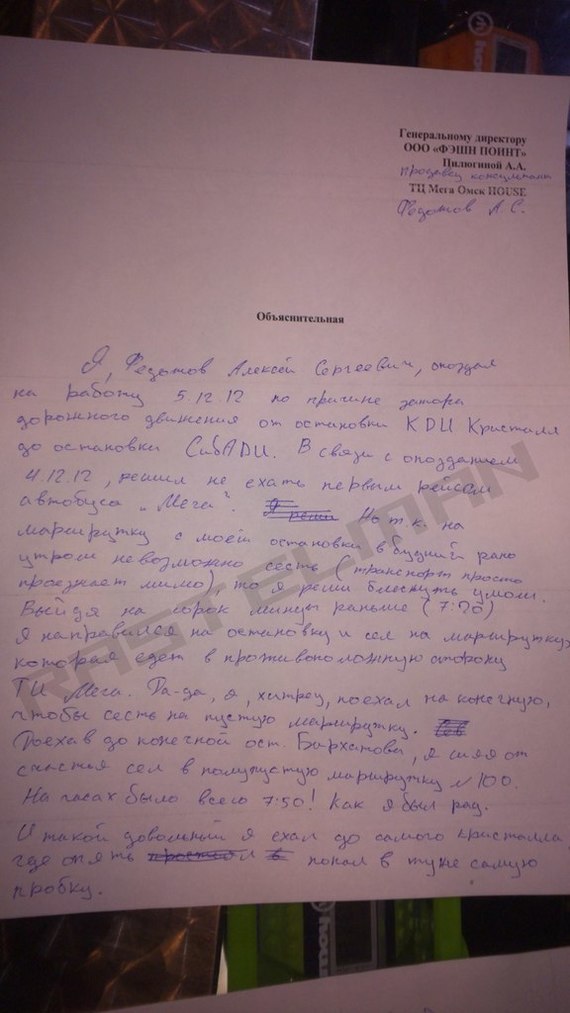 Генеральному директору
ООО «ФЭШН ПОИНТ»
Пилюгиной А.А.
продавец консультант
ТЦ Мега Омск HOUSE
Федотов А С.
Объяснительная
Я, Федотов Алексей Сергеевич, опоздал
на работу 5.12.12 по причине затора
дорожного движения от остановки КДЦ Кристалл
до остановки СибАДИ. В связи с опозданием
4.12.12, решил не ехать первым рейсом
автобуса „Мега". Но т.к. на
маршрутку с моей остановки в будний рано
утром невозможно сесть (транспорт просто
проезжает мимо) то я решил блеснуть умом.
Выйдя на сорок минут раньше (7:20)
я направился на остановку и сел на маршрутку,
которая едет в противоположную сторону
ТЦ Мега. Да-да, я, хитрец, поехал на конечную,
чтобы сесть на пустую маршрутку.
Доехав до конечной ост. Бархатова, я сияя от
счастья сел в полупустую маршрутку №100.
На часах было всего 7:50! Как я был рад.
И такой довольный я ехал до самого кристалла
где опять попал в туже самую
пробку.
RASTELMAN